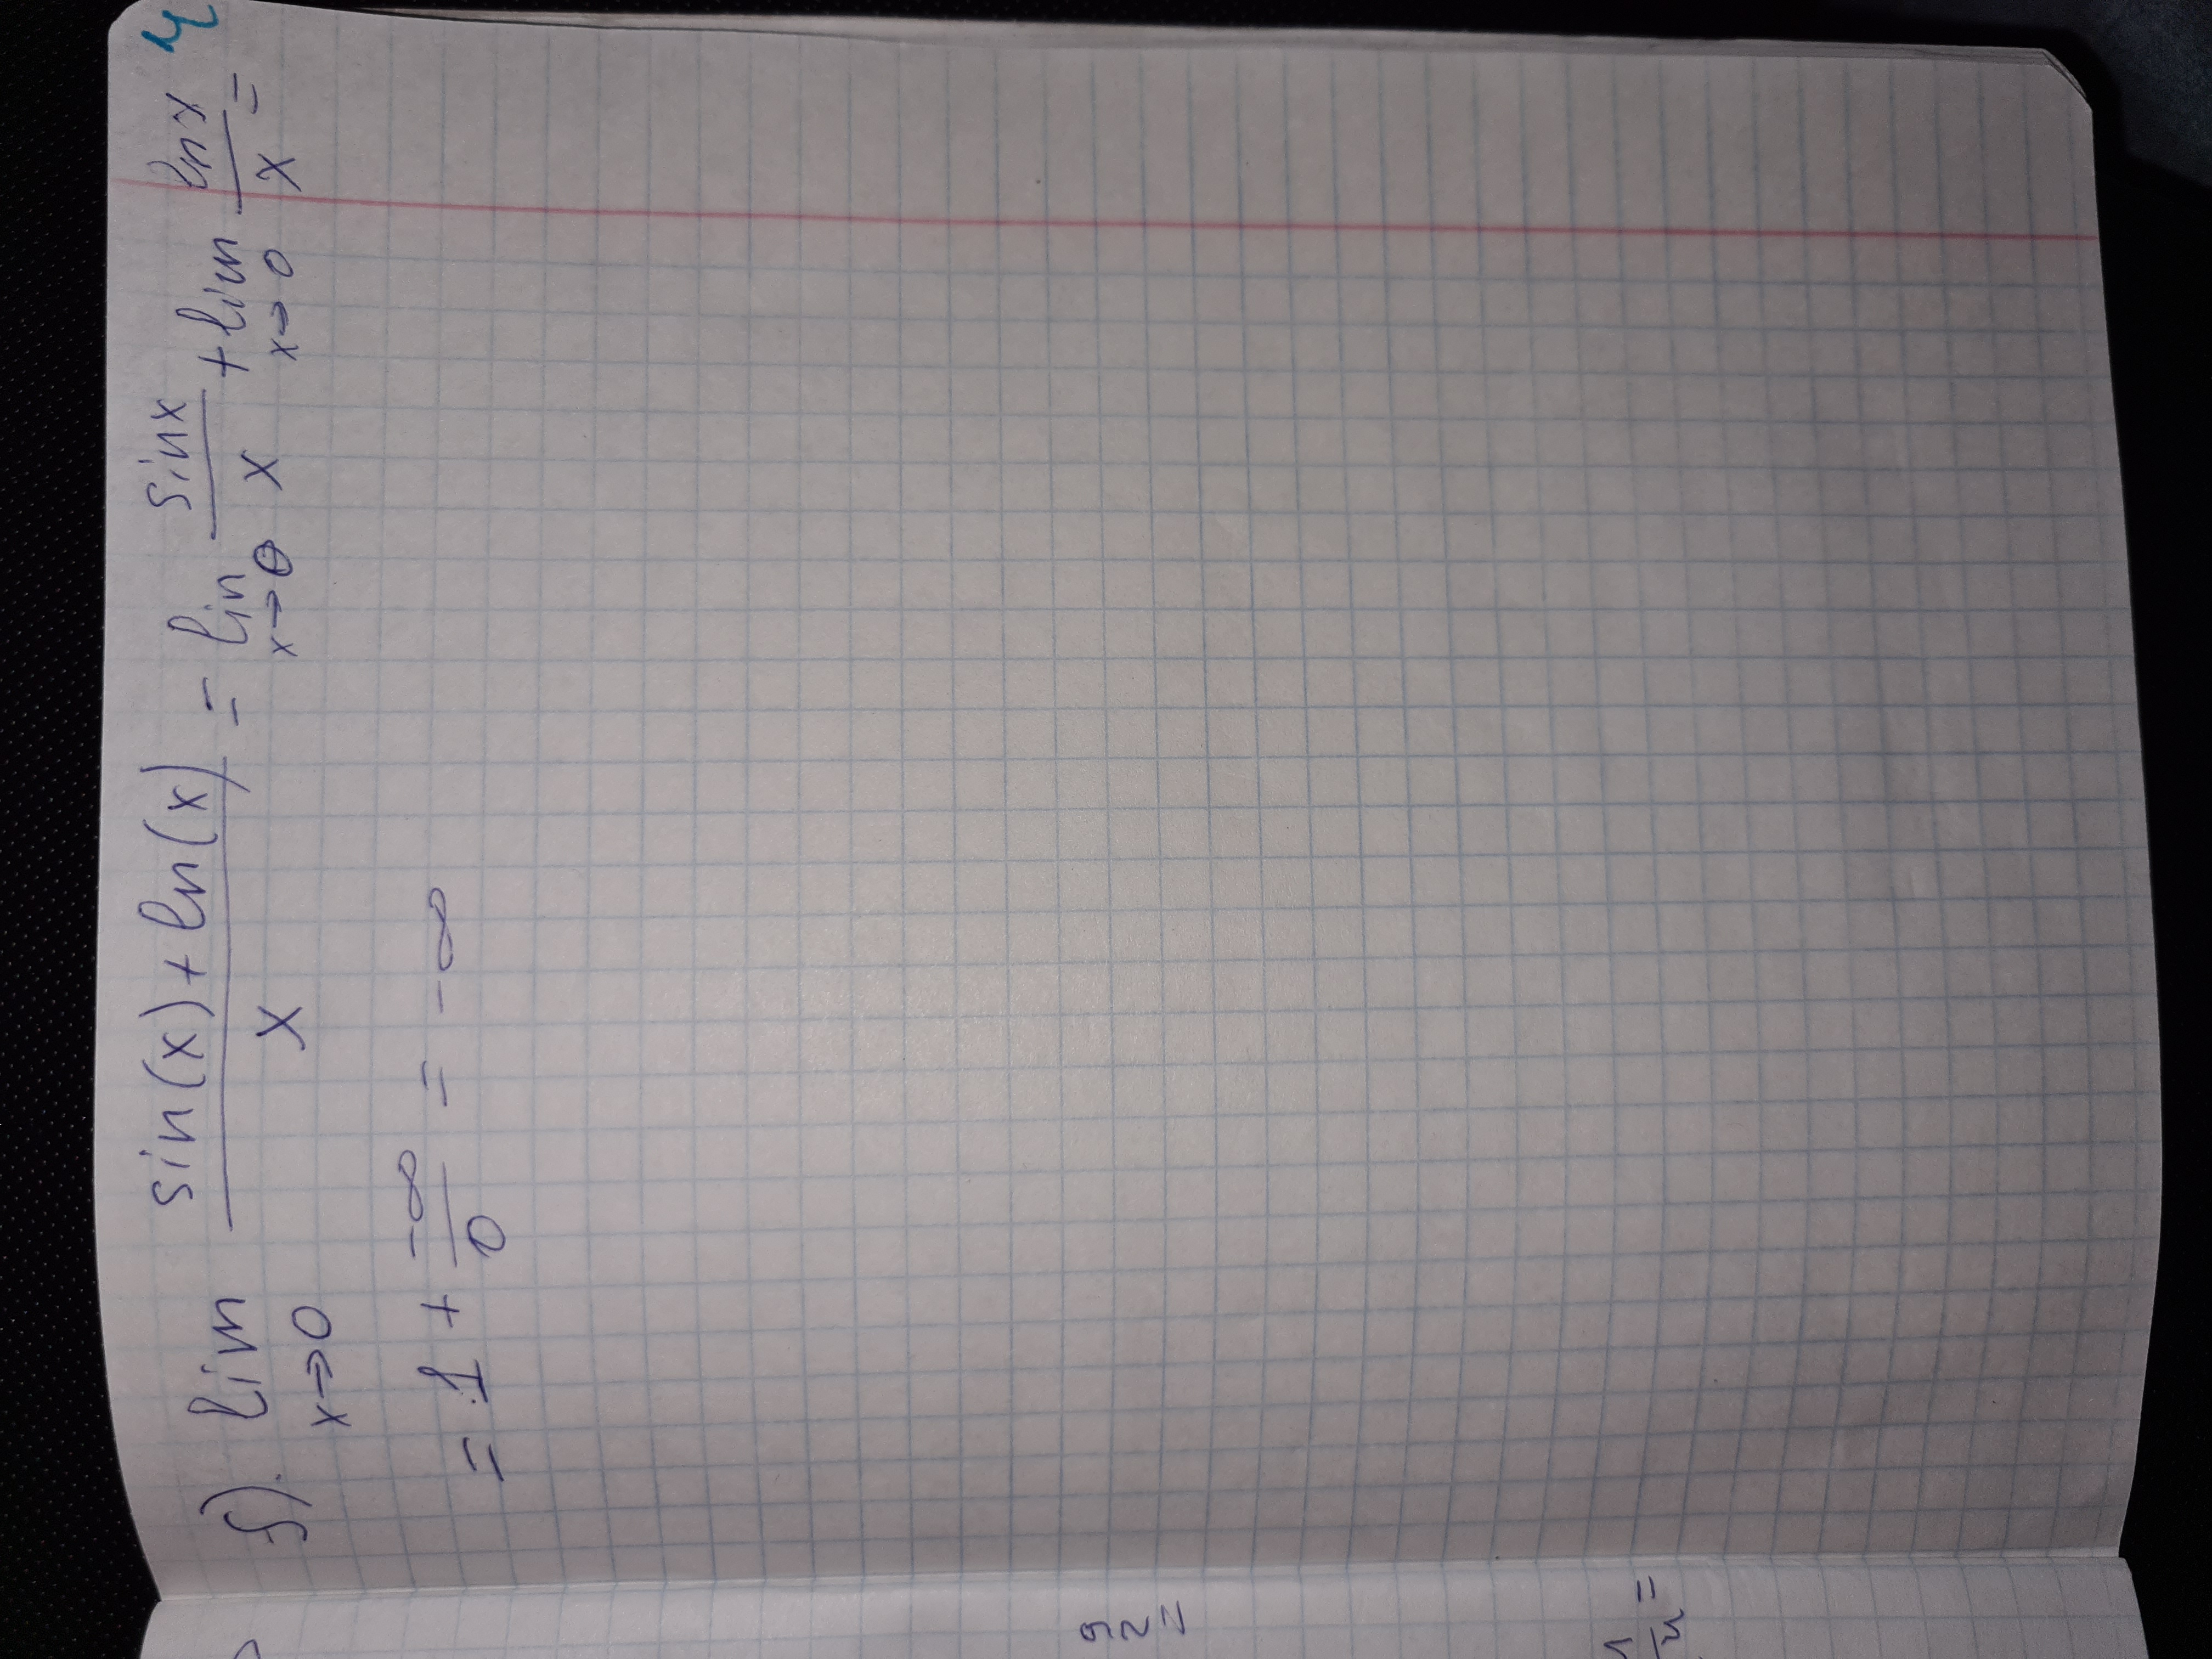 f). lim x→0 (sin(x)+ln(x))/x = lim x→0 sinx/x + lim x→0 lnx/x =
= 1 + -∞/0 = -∞
9
2
=
1/4 =